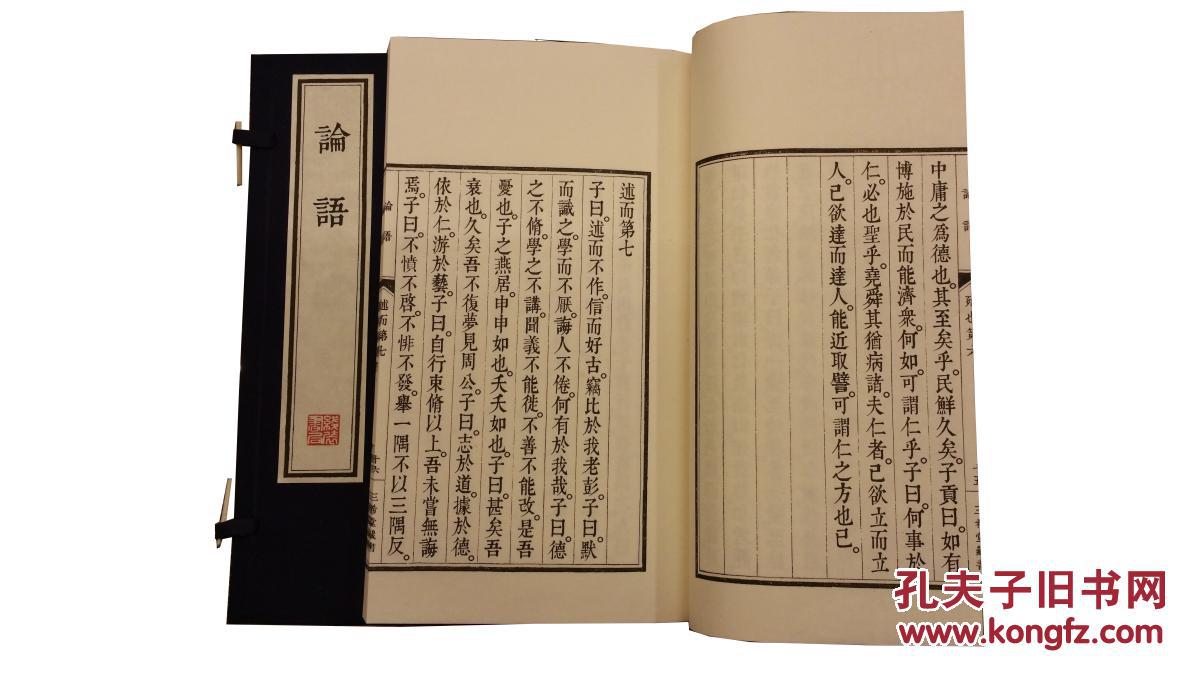 論語
中庸之爲德也。其至矣乎。民鮮久矣。子貢曰。如有
博施於民而能濟衆。何如。可謂仁乎。子曰。何事於
仁。必也聖乎。堯舜其猶病諸。夫仁者。己欲立而立
人。己欲達而達人。能近取譬。可謂仁之方也已。
述而第七
子曰。述而不作。信而好古。竊比於我老彭。子曰。默
而識之。學而不厭。誨人不倦。何有於我哉。子曰。德
之不脩。學之不講。聞義不能徙。不善不能改。是吾
憂也。子之燕居。申申如也。夭夭如也。子曰。甚矣吾
衰也。久矣吾不復夢見周公。子曰。志於道。據於德。
依於仁。游於藝。子曰。自行束脩以上。吾未嘗無誨
焉。子曰。不憤不啓。不悱不發。舉一隅不以三隅反。
論語
述而第七
孔夫子旧书网
www.kongfz.com